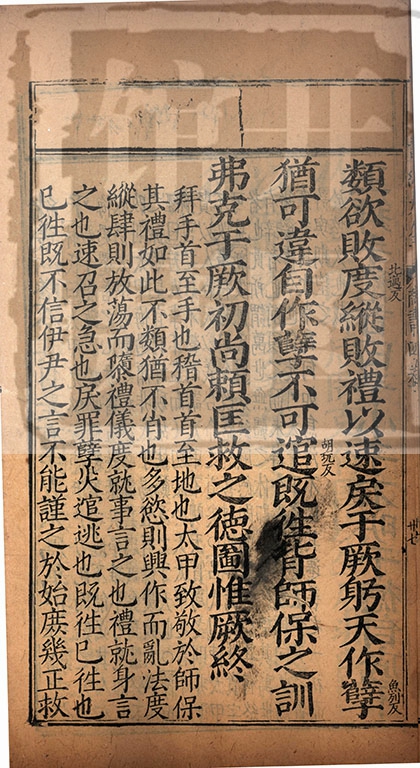 類欲敗度縱敗禮以速戾于厥躬天作孽
猶可違自作孽不可逭既徃背師保之訓
弗克于厥初尚賴匡救之德圖惟厥終
拜手首至手也稽首首至地也太甲致敬於師保
其禮如此不類猶不肖也多慾則興作而亂法度
縱肆則放蕩而隳禮儀度就事言之也禮就身言
之也速召之急也戾罪孽災逭逃也既徃已徃也
已徃既不信伊尹之言不能謹之於始庶幾正救
北邁反
魚列反
胡玩反
卅七